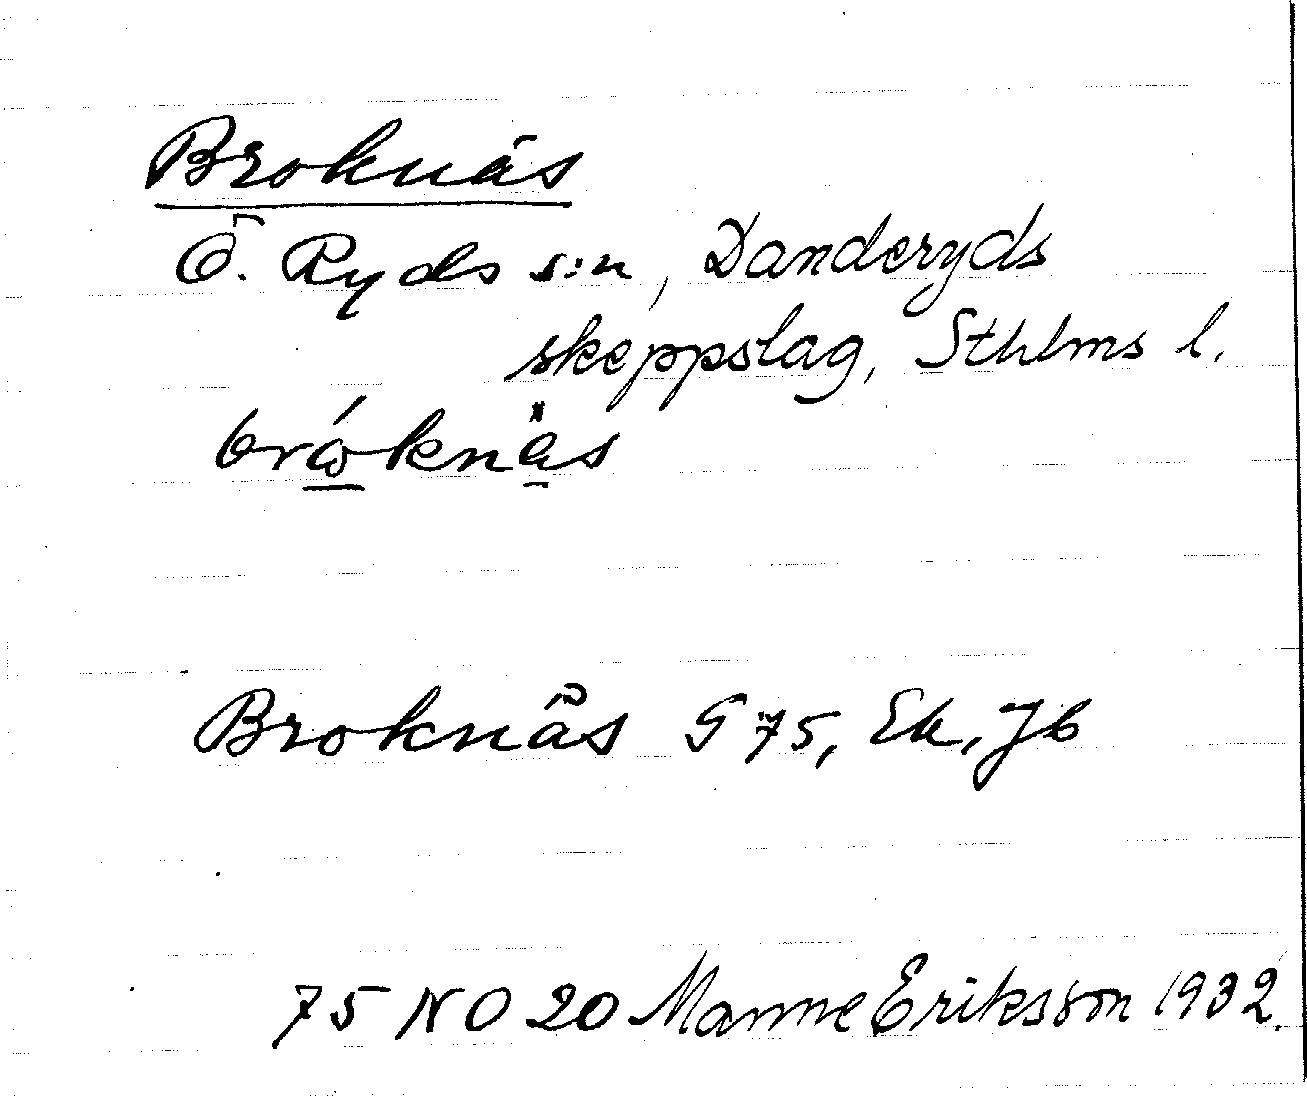 Broknäs
Ö. Ryds s:n, Danderyds
skeppslag, Sthlms l.
brόknäs
Broknäs G 75, Ek, Jb
75 NO 20 Manne Eriksson 1932.